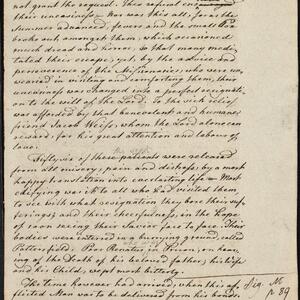 not grant the request. This refusal encreased
their uneasiness. Nor was this all, for as the
Summer advanced, fevers and the small Pox
broke out amongst them, which occasioned
much dread and horror, so that many medi-
tated their escape; yet, by the advice and
perseverance of the Missionaries, who were un-
wearied in visiting and comforting them, their
uneasiness was changed into a perfect resignati-
on to the will of the Lord. To the sick relief
was afforded by that benevolent and humane
friend Jacob Weiss, whom the Lord alone can
reward, for his great attention and labour of
love.
Fifty six of these patients were released
from all misery, pain and distress, by a most
happy translation into everlasting life — Most
edifying was it to all who had visited them
to see with what resignation they bore their suf-
ferings; and their cheerfulness, in the hope
of soon seeing their Saviour face to face. Their
bodies were interred in a burying ground, called
Pottersfield. Poor Renatus in Prison, on hear-
ing of the Death of his beloved father, his wife
and his Child, wept most bitterly.
The time however had arrived, when this af-
flicted Man was to be delivered from his bonds.
No
p 89